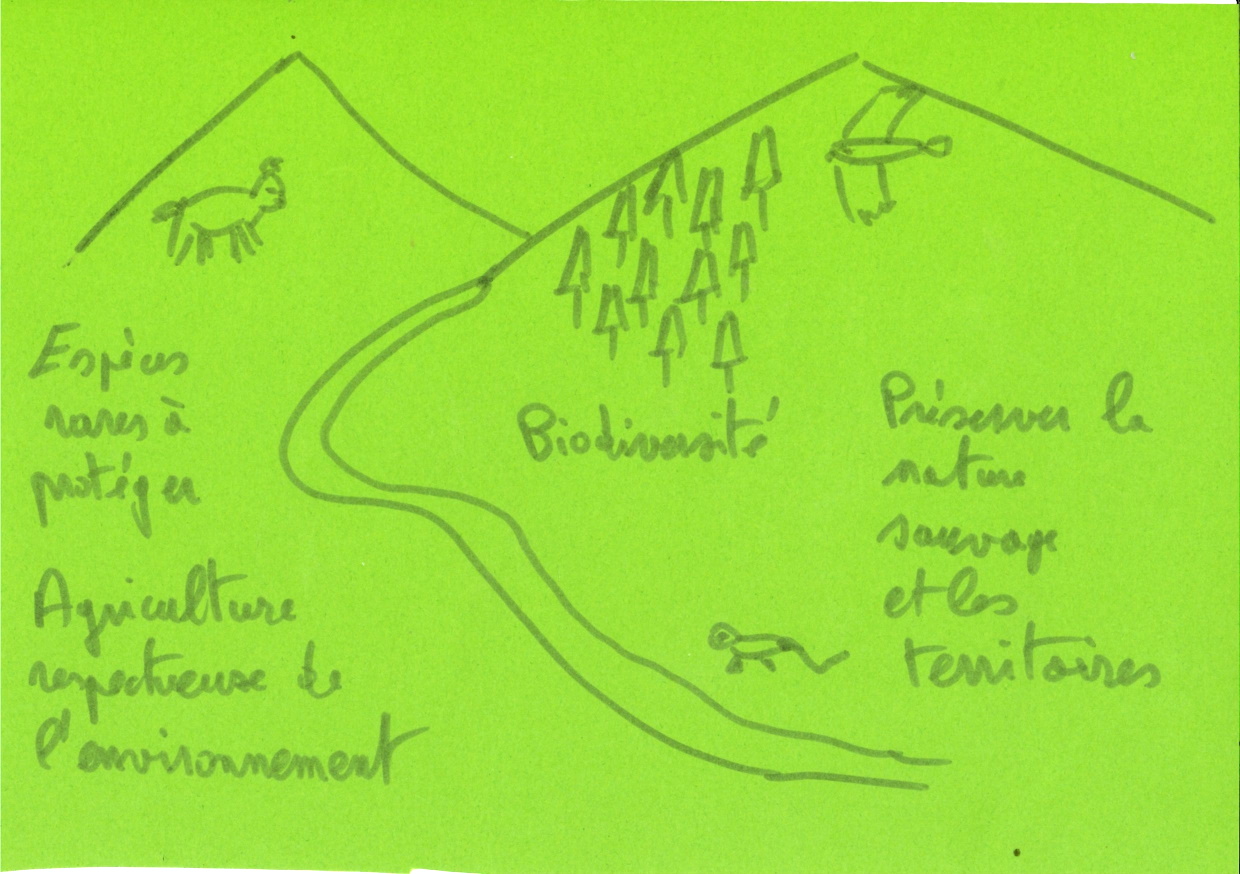 Espèces
rares à
protéger
Agriculture
respectueuse de
l'environnement
Biodiversité
Préserver la
nature
sauvage
et les
territoires